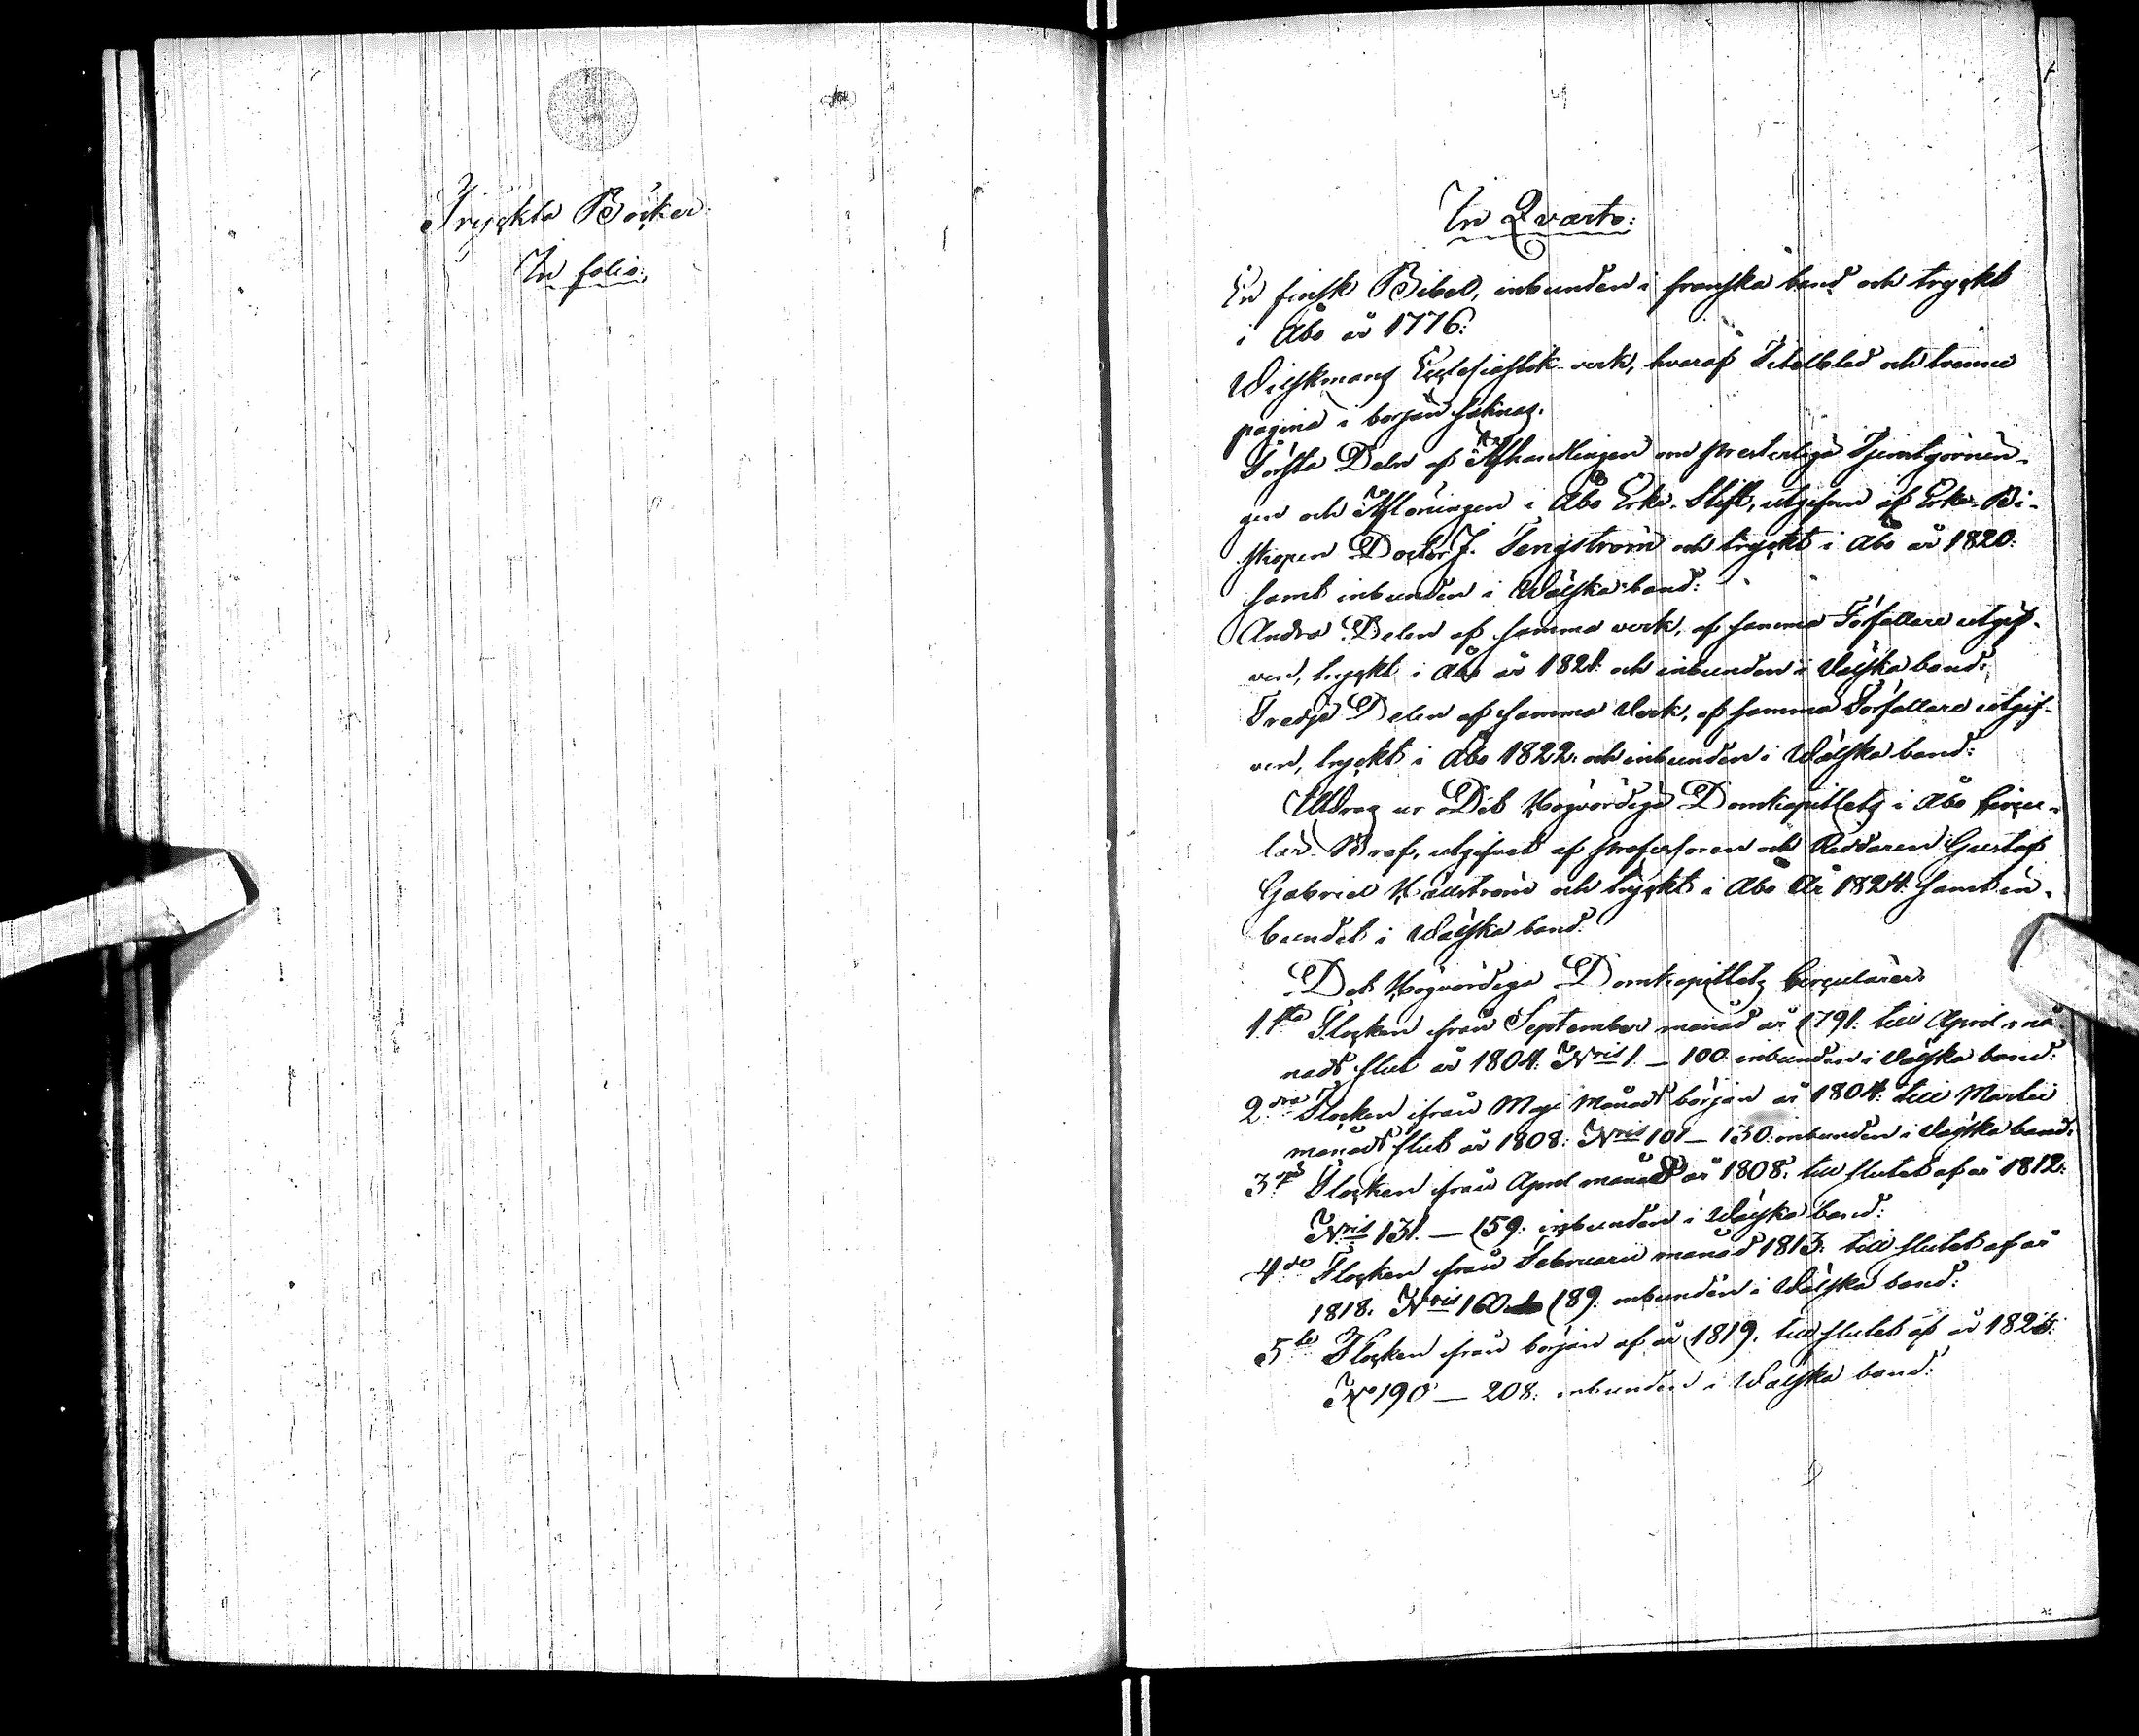 Tryckta Böcker.
In folio.
In Qvarto:
En finsk Bibel, inbunden i franska band och tryckt
i Åbo år 1776.
Wilskmans Ecclesiastik verk, hvaraf Titelblad och tvenne
pagina i början saknas.
Första Deln af Afhandlingen om Presterliga Tjenstgörnin-
gen och Aflöningen i Åbo Erke-Stift, utgifven af Erke-Bi-
skopen Doctor J. Tengström och tryckt i Åbo år 1820.
samt inbunden i Wälska band:
Andra Delen af samma verk, af samma Författare utgif-
ven, tryckt i Åbo år 1821. och inbunden i Välska band.
Tredje Delen af samma Verk, af samma Författare utgif-
ven, tryckt i Åbo 1822. och inbunden i Wälska band:
Utdrag ur Det Högvördiga Domkapitlets i Åbo Circu-
lär-Bref, utgifvet af Professoren och Riddaren Gustaf
Gabriel Hällström och tryckt i Åbo År 1824. samt in-
bundet i Wälska band.
Det Högvördiga Domkapitlets Circulärer.
1.sta Flocken från September månad år 1791. till April må-
nads slut år 1804. Nris 1. – 100. inbunden i Välska band:
2.dra Flocken ifrån Maji Månads början år 1804. till Martii
månads slut år 1808. Nris 101 – 130. inbunden i Välska band.
3.dje Flocken från April månad år 1808. till slutet af år 1812.
Nris 131. – 159. inbunden i Wälska band:
4.de Flocken från Februarii månad 1813. till slutet af år
1818. Nris 160 189. inbunden i Wälska band:
5.te Flocken från början af år 1819. till slutet af år
No 190 – 208. inbunden i Wälska band.